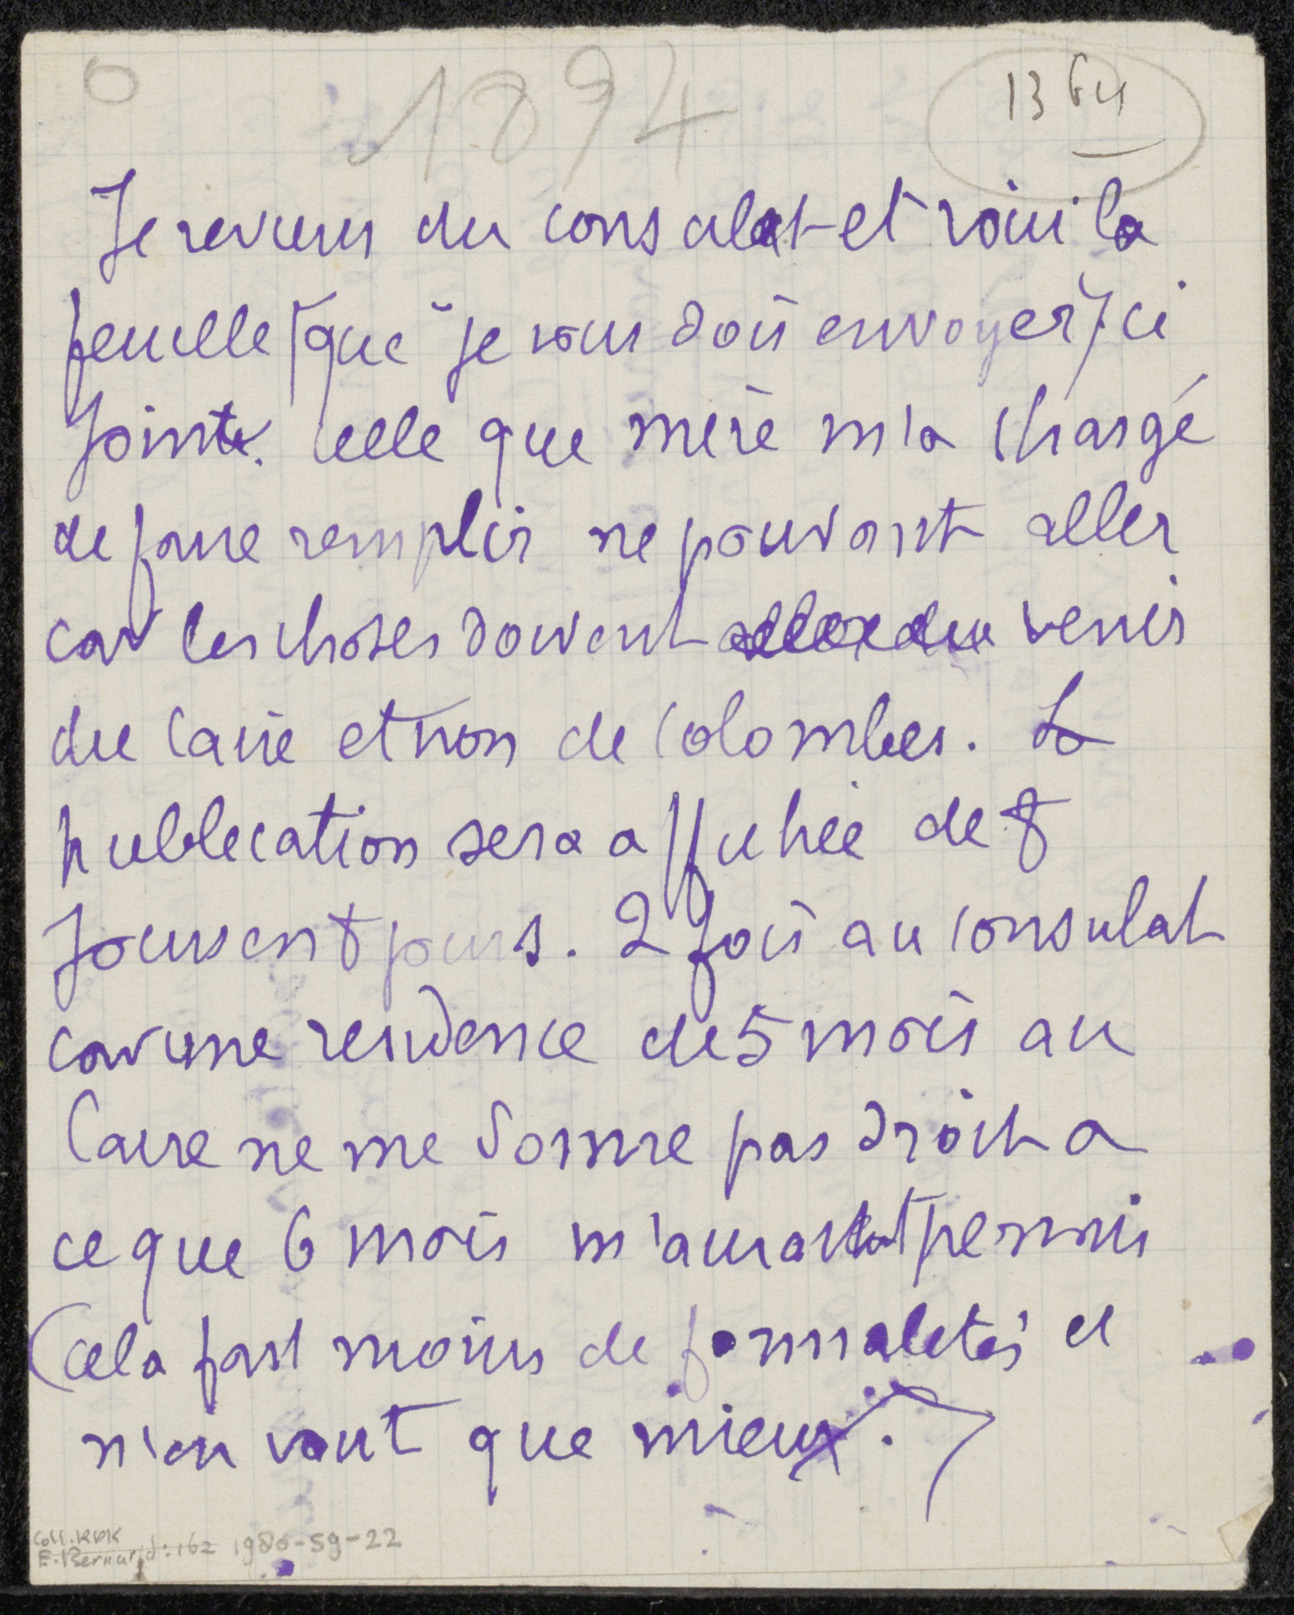 1894
1364
Je reviens du consulat et voici la
feuille (que je vous dois envoyer) ci
jointe. Celle que mère m'a chargé
de faire remplir ne pouvant aller
car les choses doivent venir
du Caire et non de Colombes. La
publication sera affichée de 8
jours en 8 jours. 2 fois au consulat
car une residence de 5 mois au
Caire ne me donne pas droit a
ce que 6 mois m'auraient permis
(cela fait moins de formalités et
n'en vaut que mieux.)
Coll. RVK
E. Bernard: 162 1980-59-22